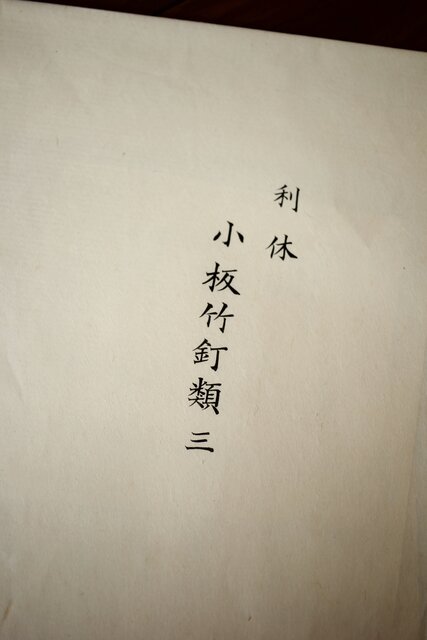 利休
小板竹釘類三